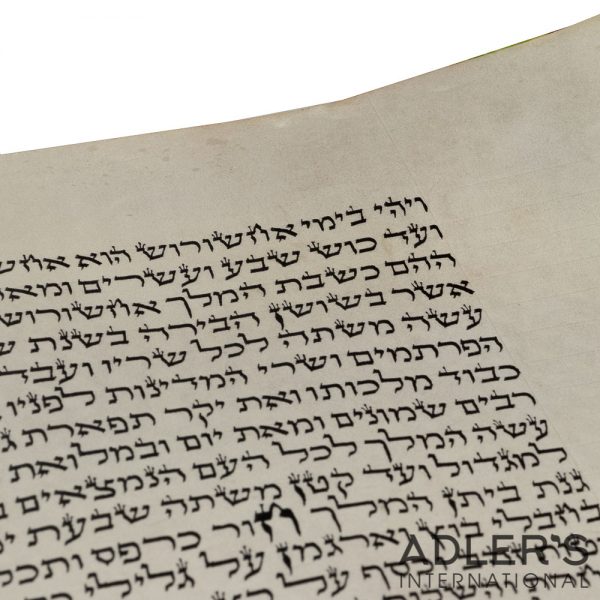 ויהי בימי אחשורוש הוא אחש
ועד כוש שבע ועשרים ומאה
ההם כשבת המלך אחשורוש
אשר בשושן הבירה בשנת
עשה משתה לכל שריו ועבד
הפרתמים ושרי המדינות לפניו
כבוד מלכותו ואת יקר תפארת
רבים שמונים ומאת יום ובמלואת
עשה המלך לכל העם הנמצאים
למגדול ועד קטן משתה שבעת
גנת ביתן המלך חור כרפס ותכ
בחבלי בוץ וארגמן על גלילי
ADLER'S
INTERNATIONAL